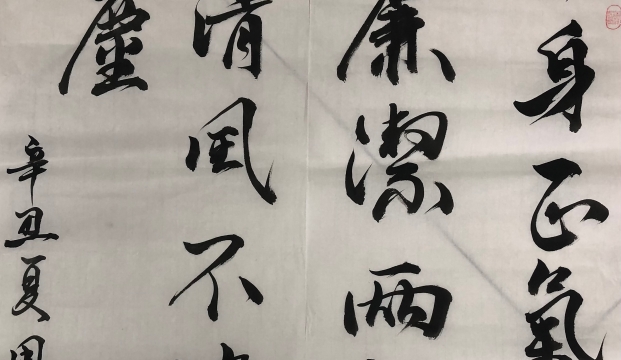 身正氣
廉潔兩
清風不
塵
辛丑夏周